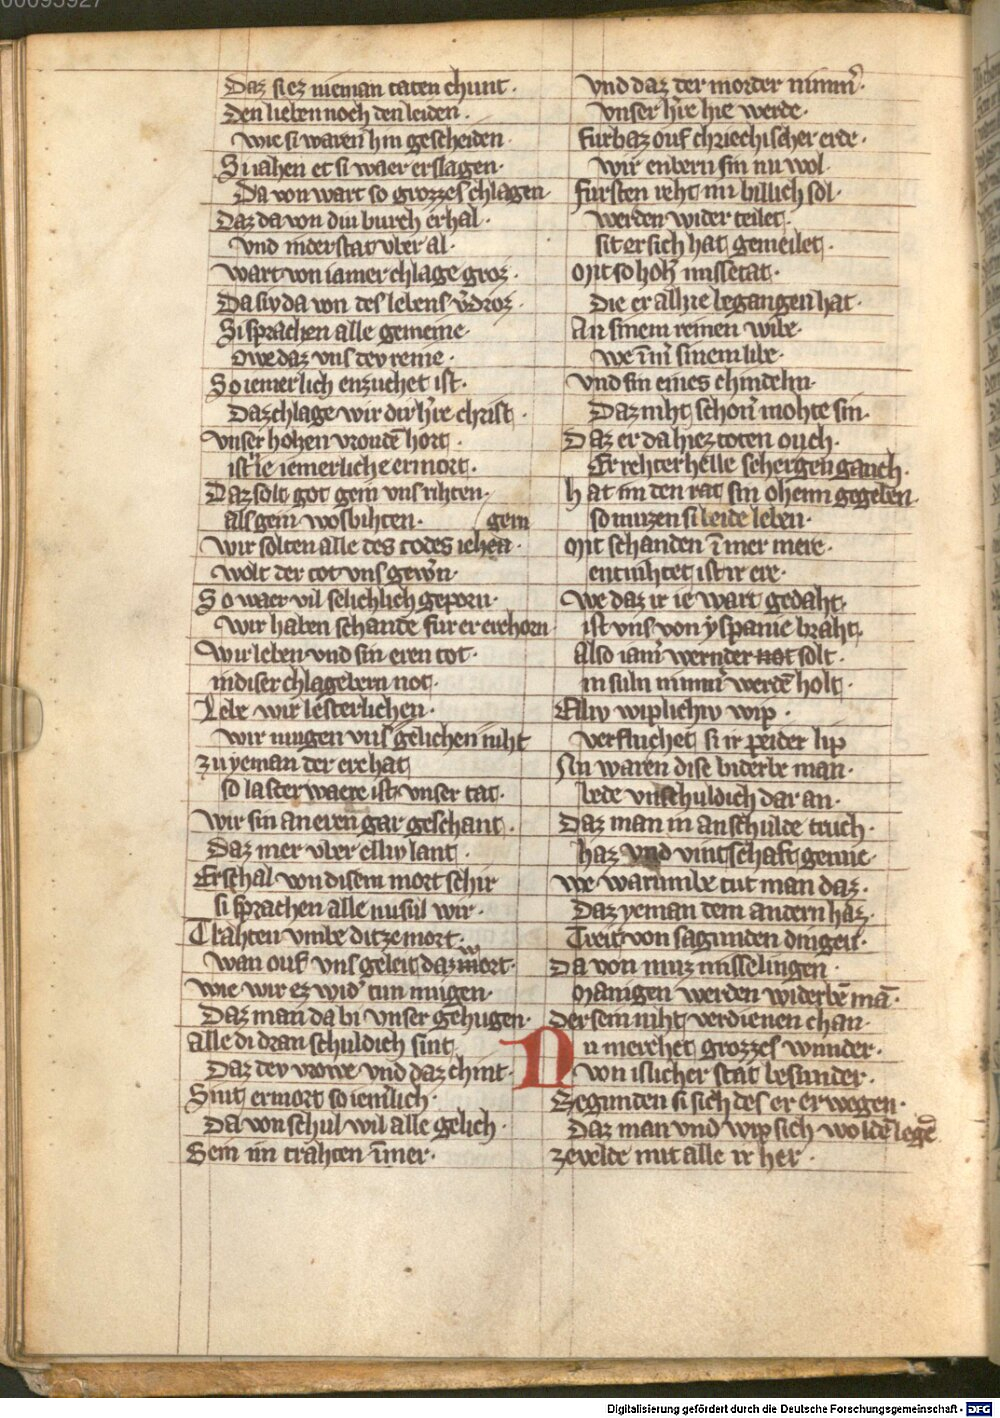 00095927
Daz si ez nieman taten chunt ·
Den lieben noch den leiden ·
wie si waren hin gescheiden ·
Si iahen et si waer erslagen ·
Da von wart so grozzes chlagen ·
Daz da von diu burch erhal ·
vnd in der stat vber al ·
wart von iamer chlage groz ·
Da siv da von des lebens v̓droz ·
Si sprachen alle gemeine ·
Owe daz vns dev reine ·
So iemerlich enzuchet ist ·
Daz chlage wir dir h̓re christ ·
vnser hohen vrouden̄ hort ·
ist ie iemerliche ermort ·
Daz solt got gein vns rihten ·
als gein wosbihten · gein
wir solten alle des todes iehen ·
wolt der tot vns gew̓n ·
So waer vil selichlich geporn ·
wir haben schande fur er erchorn ·
wir leben vnd sin eren tot ·
in diser chlagebern not ·
Lebe wir lesterlichen ·
wir mugen vns gelichen niht
zu yeman der ere hat
so lasterwaere ist vnser tat ·
wir sin an eren gar geschant ·
Daz mer vber elliv lant ·
Erschal von disem mort schir
si sprachen alle nu sul wir ·
Trahten vmbe ditze mort ·
wan ouf vns geleit daz mort ·
wie wir ez wid̓ tun mugen ·
Daz man da bi vnser gehugen ·
alle di dran schuldich sint
Daz dev vrowe vnd daz chint ·
Sint ermort so iem̓lich ·
Da von schul wil alle gelich ·
Gein im trahten im̄er ·
vnd daz der morder nimm̓ ·
vnser h̓re hie werde ·
furbaz ouf chriechischer erde ·
wir enbern sin nu wol ·
fursten reht im billich sol ·
werden wider teilet ·
sit er sich hat gemeilet ·
Mit so hoh̓ missetat ·
Die er allhie begangen hat ·
An sinem reinen wibe ·
we im̄ sinem libe ·
vnd sin eines chindelin ·
Daz niht schon̓ mohte sin ·
Daz er da hiez toten ouch ·
Er rehter helle schergen gauch ·
hat im den rat sin oheim gegeben ·
so muzen si leide leben ·
Mit schanden im̄er mere ·
entnihtet ist ir ere ·
We daz ir ie wart gedaht ·
ist vns von yspanie braht ·
Also iam̓ wernder not solt ·
in suln nimm̓ werdē holt ·
Elliv wiplichiv wip ·
verfluchet si ir peider lip
Nu waren dise biderbe man ·
bede vnschuldich dar an ·
Daz man in anschulde truch ·
haz vnd vintschaft genuc ·
we warumbe tut man daz ·
Daz yeman dem andern haz ·
Treit von sagunden dingen ·
Da von muz misselingen ·
Manigen werden widerbē mā ·
Der sein niht verdienen chan ·
Nu merchet grozzes wunder ·
von islicher stat besunder ·
Begunden si sich des er erwegen ·
Daz man vnd wip sich woldē legē
ze velde mit alle ir her ·
Digitalisierung gefördert durch die Deutsche Forschungsgemeinschaft - DFG